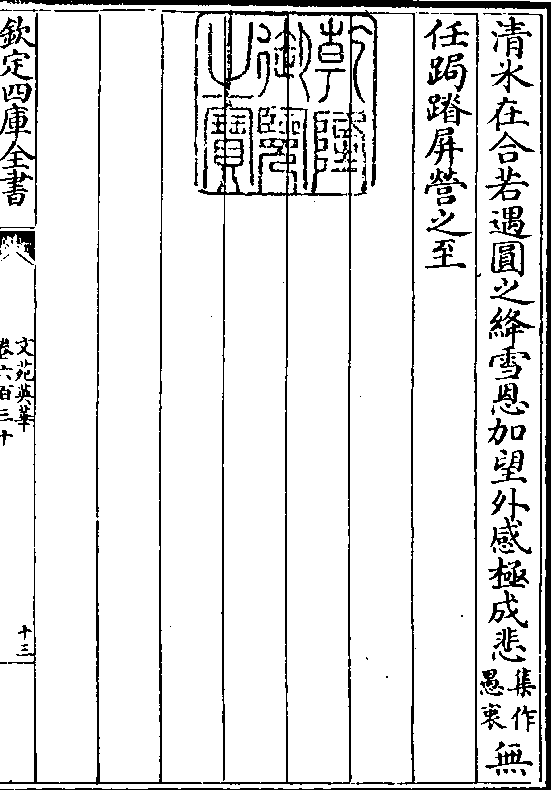 清氷在合若遇圓之絳雪恩加望外感極成悲集作愚衷無
任跼蹐屏營之至
乾隆御覽之寶
欽定四庫全書
文苑英華
卷六百三十
十三